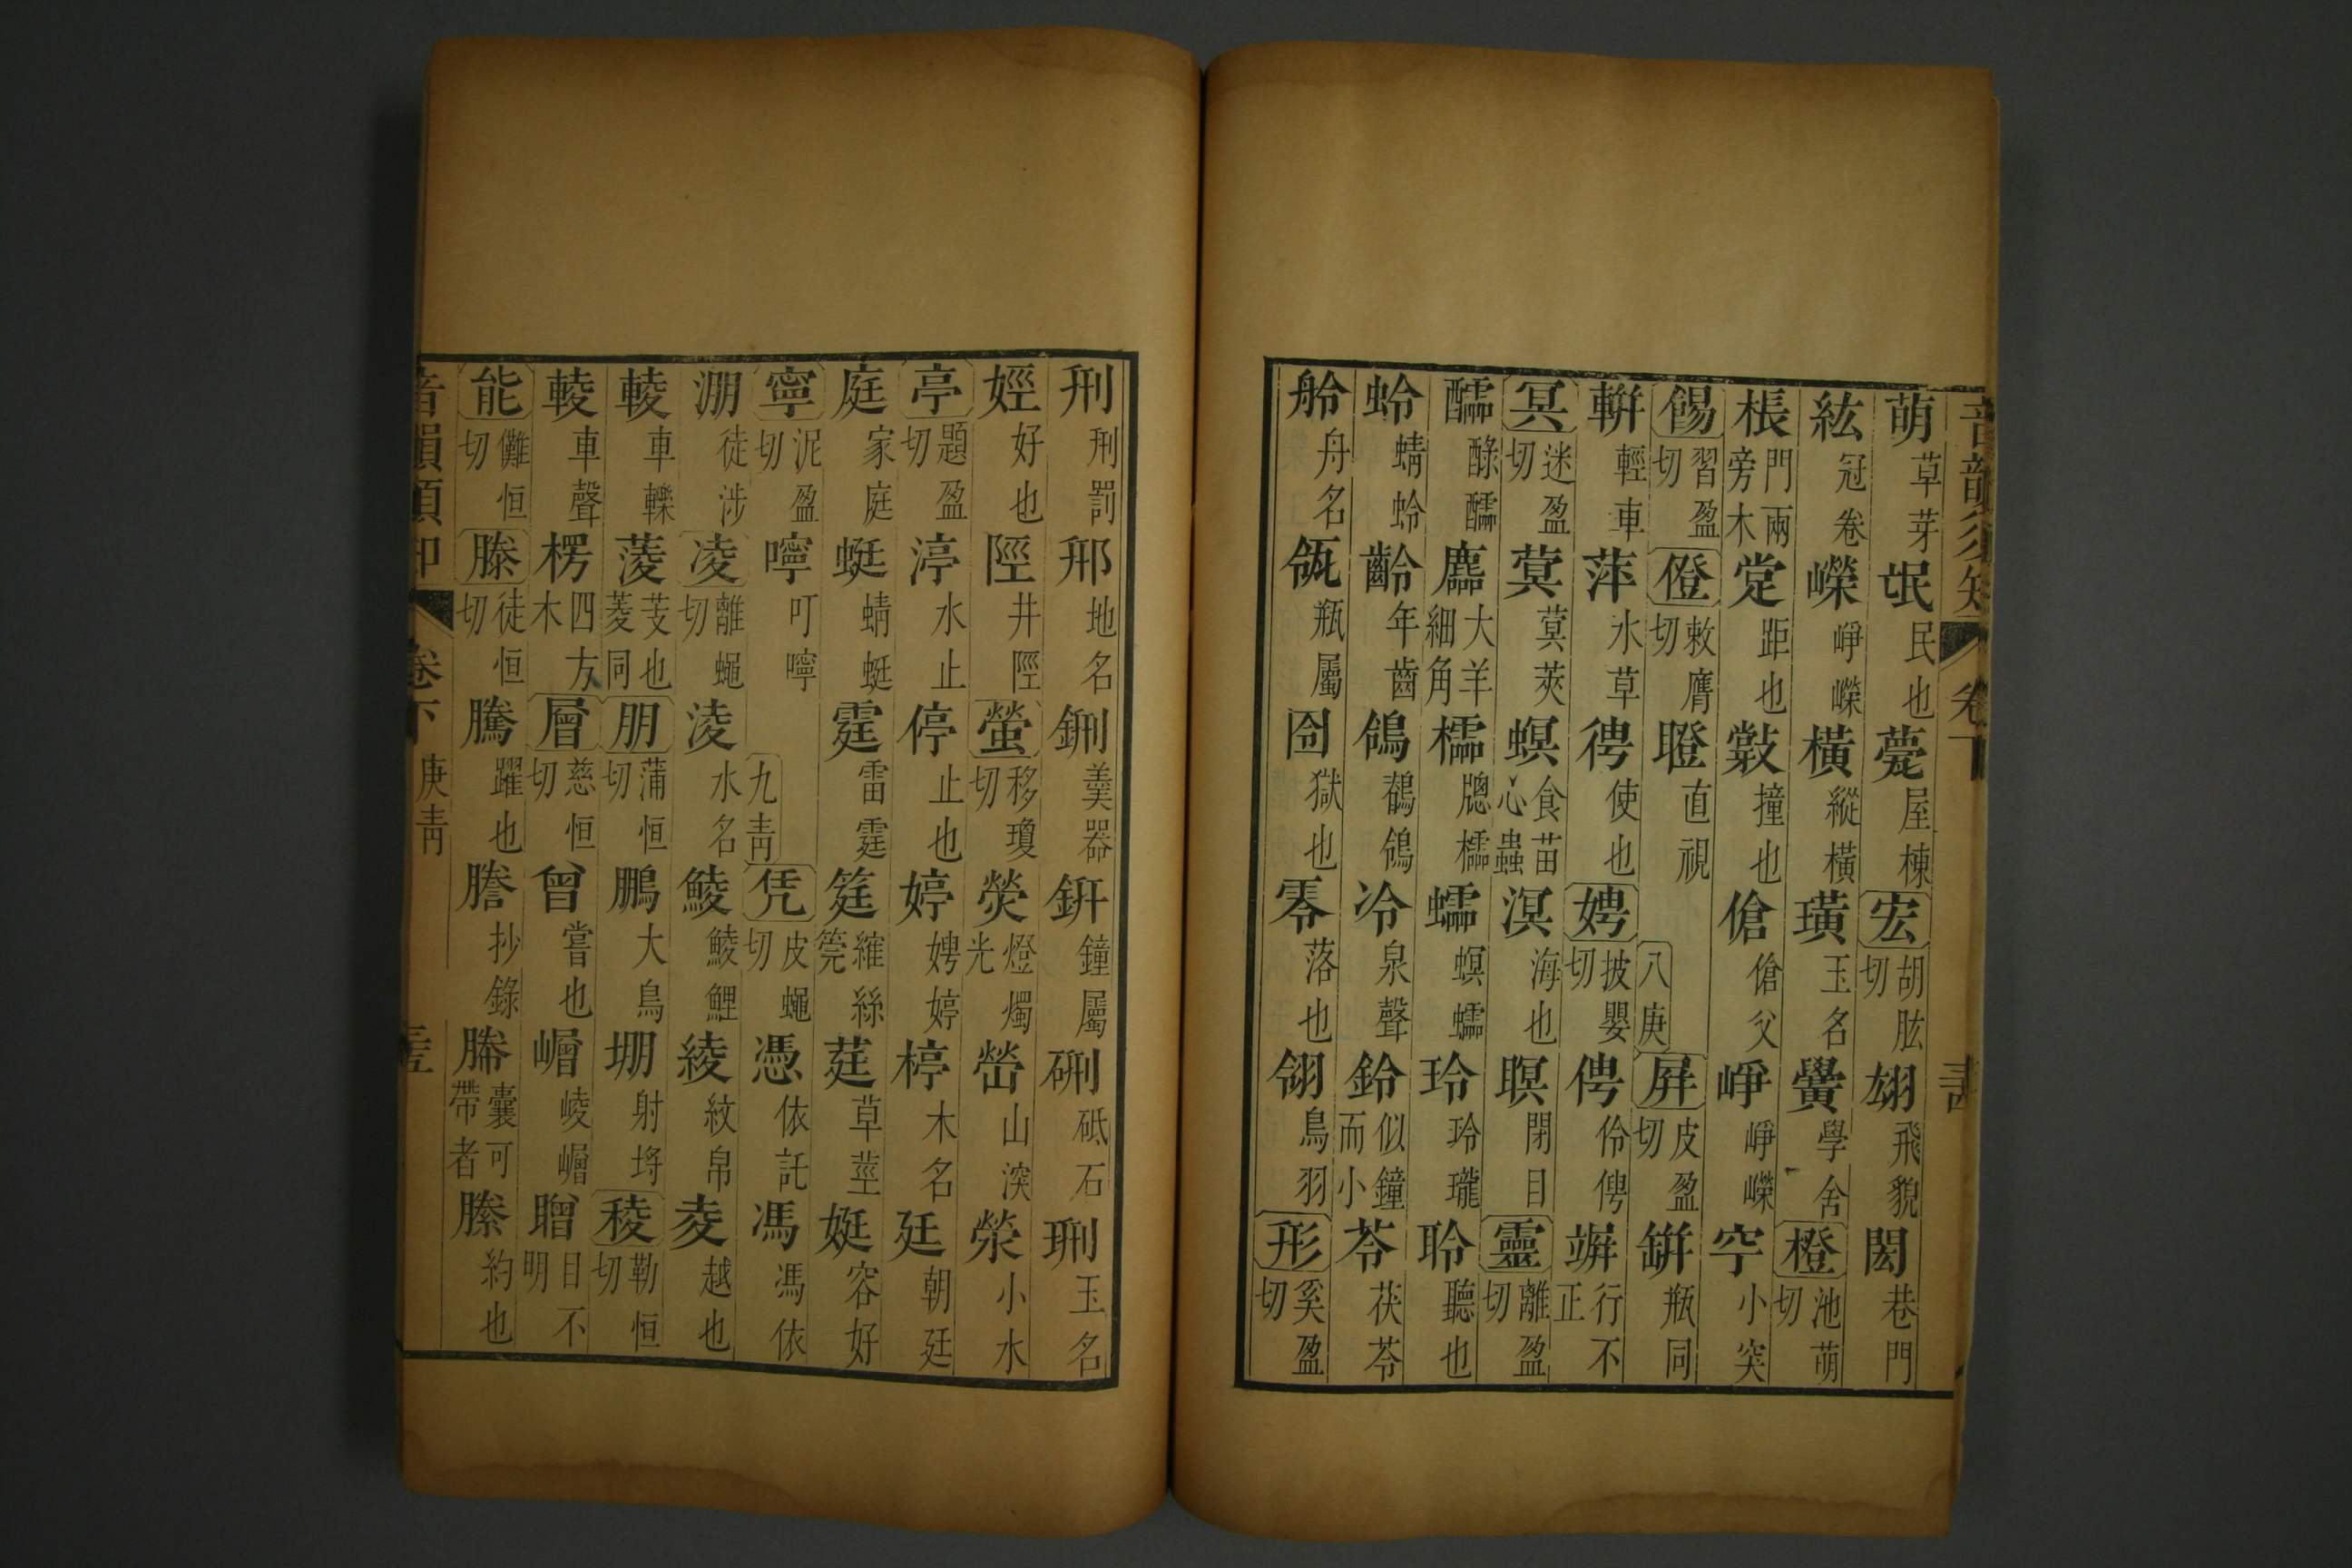 音韻須知 卷下
萌草芽氓民也甍屋棟宏胡肱切翃飛貌閎巷門
紘冠卷嶸崢嶸橫縱橫璜玉名黌學舍橙池萌切
棖門兩旁木定距也㪇撞也傖傖父崢崢嶸穻小突
餳習盈切僜敕膺切瞪直視 八庚 屏皮盈切缾瓶同
軿輕車萍水草俜使也娉披嬰切俜伶俜竮行不正
冥迷盈切蓂蓂莢螟食苗心蟲溟海也瞑閉目靈離盈切
醽醁醽麢大羊細角櫺牎櫺蠕螟蠕玲玲瓏聆聽也
蛉蜻蛉齡年齒鴒鶺鴒泠泉聲鈴似鐘而小苓茯苓
舲舟名瓴瓶屬囹獄也零落也翎鳥羽形奚盈切
刑刑罰邢地名鉶羹器鈃鐘屬硎砥石珩玉名
娙好也陘井陘螢移瓊切熒燈燭光嵤山深滎小水
亭題盈切渟水止停止也婷娉婷楟木名廷朝廷
庭家庭蜓蜻蜓霆雷霆筳維絲筦莛草莖娗容好
寧泥盈切嚀叮嚀 九青 凭皮蠅切憑依託馮馮依
淜徒涉凌離蠅切淩水名鯪鯪鯉綾紋帛夌越也
輘車轢蔆芰也菱同朋蒲恒切鵬大鳥堋射埓稜勒恒切
輘車聲楞四方木層慈恒切曾嘗也嶒崚嶒䁬目不明
能儺恒切滕徒恒切騰躍也謄抄錄幐囊可帶者縢約也
音韻須知 卷下 庚青